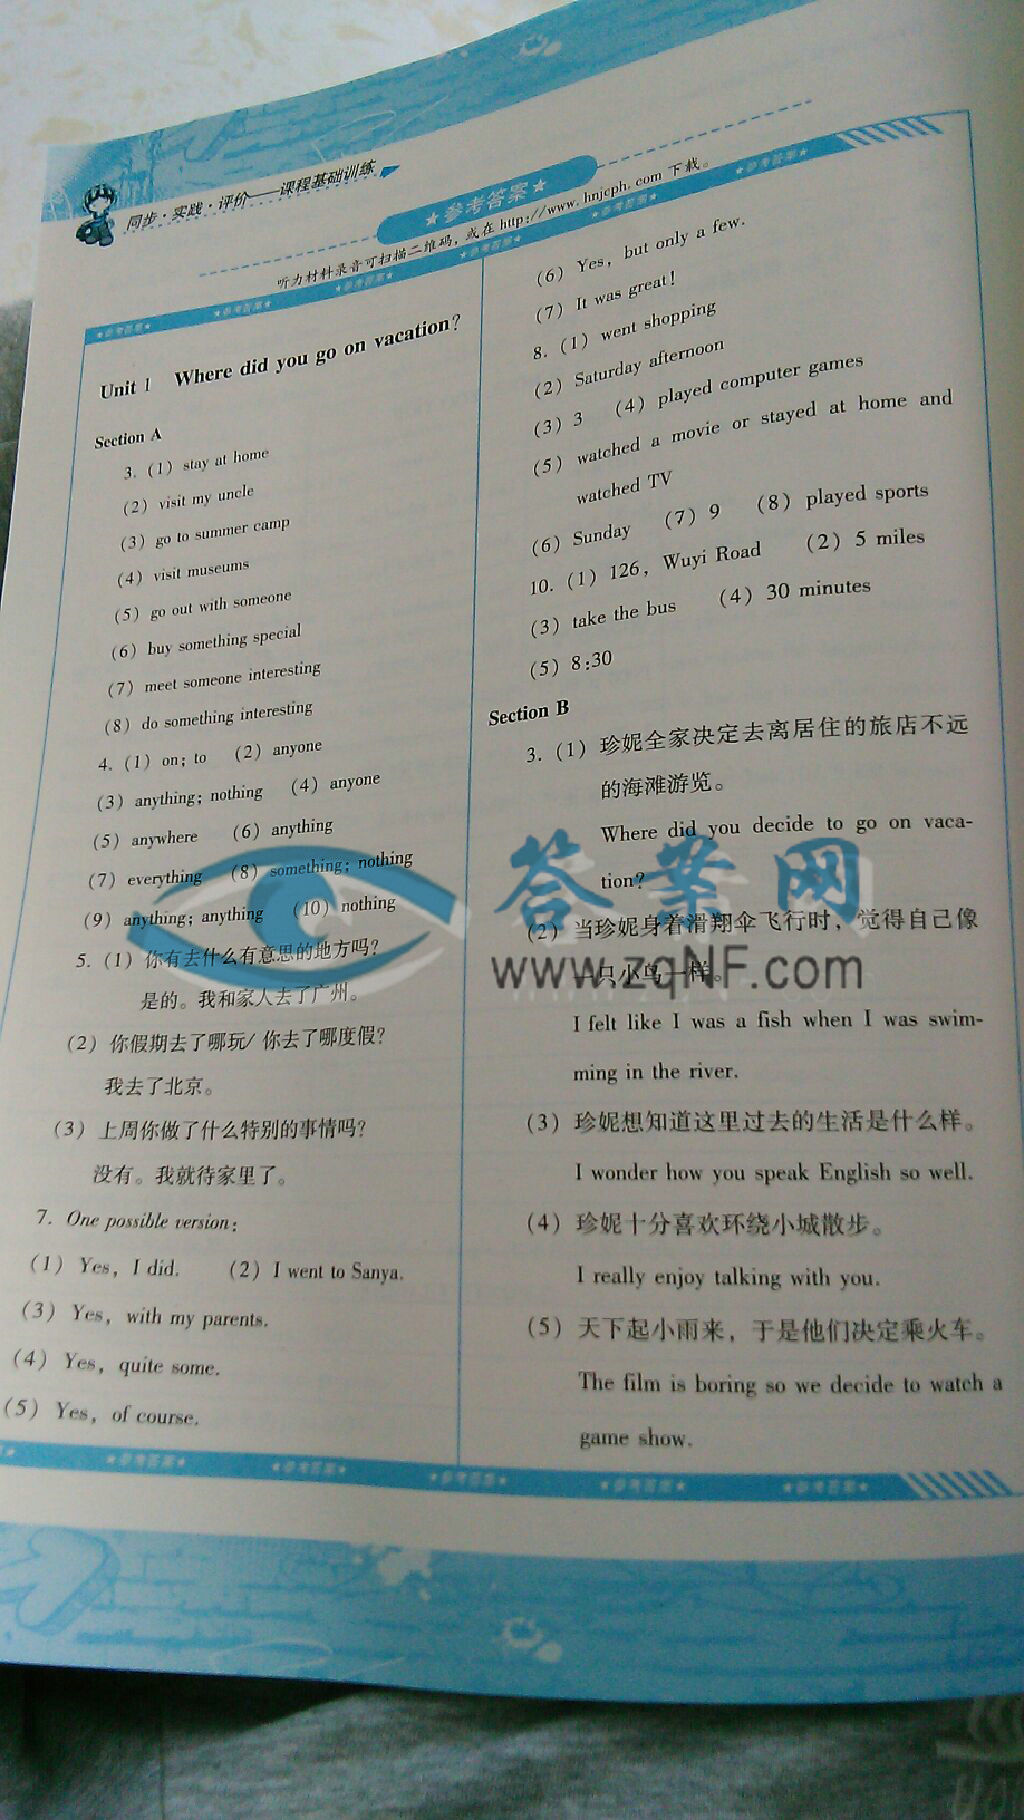 同步·实践·评价——课程基础训练
★参考答案★
听力材料录音可扫描二维码，或在 http://www.hnjcph.com 下载。
Unit 1 Where did you go on vacation?
Section A
3. (1) stay at home
(2) visit my uncle
(3) go to summer camp
(4) visit museums
(5) go out with someone
(6) buy something special
(7) meet someone interesting
(8) do something interesting
4. (1) on; to (2) anyone
(3) anything; nothing (4) anyone
(5) anywhere (6) anything
(7) everything (8) something; nothing
(9) anything; anything (10) nothing
5. (1) 你有去什么有意思的地方吗?
是的。我和家人去了广州。
(2) 你假期去了哪玩/ 你去了哪度假?
我去了北京。
(3) 上周你做了什么特别的事情吗?
没有。我就待家里了。
7. One possible version:
(1) Yes, I did. (2) I went to Sanya.
(3) Yes, with my parents.
(4) Yes, quite some.
(5) Yes, of course.
(6) Yes, but only a few.
(7) It was great!
8. (1) went shopping
(2) Saturday afternoon
(3) 3 (4) played computer games
(5) watched a movie or stayed at home and
watched TV
(6) Sunday (7) 9 (8) played sports
10. (1) 126, Wuyi Road (2) 5 miles
(3) take the bus (4) 30 minutes
(5) 8:30
Section B
3. (1) 珍妮全家决定去离居住的旅店不远
的海滩游览。
Where did you decide to go on vaca-
tion?
(2) 当珍妮身着滑翔伞飞行时，觉得自己像
一只小鸟一样。
I felt like I was a fish when I was swim-
ming in the river.
(3) 珍妮想知道这里过去的生活是什么样。
I wonder how you speak English so well.
(4) 珍妮十分喜欢环绕小城散步。
I really enjoy talking with you.
(5) 天下起小雨来，于是他们决定乘火车。
The film is boring so we decide to watch a
game show.
★参考答案★ ★参考答案★ ★参考答案★ ★参考答案★ ★参考答案★
答案网
www.zqNF.com